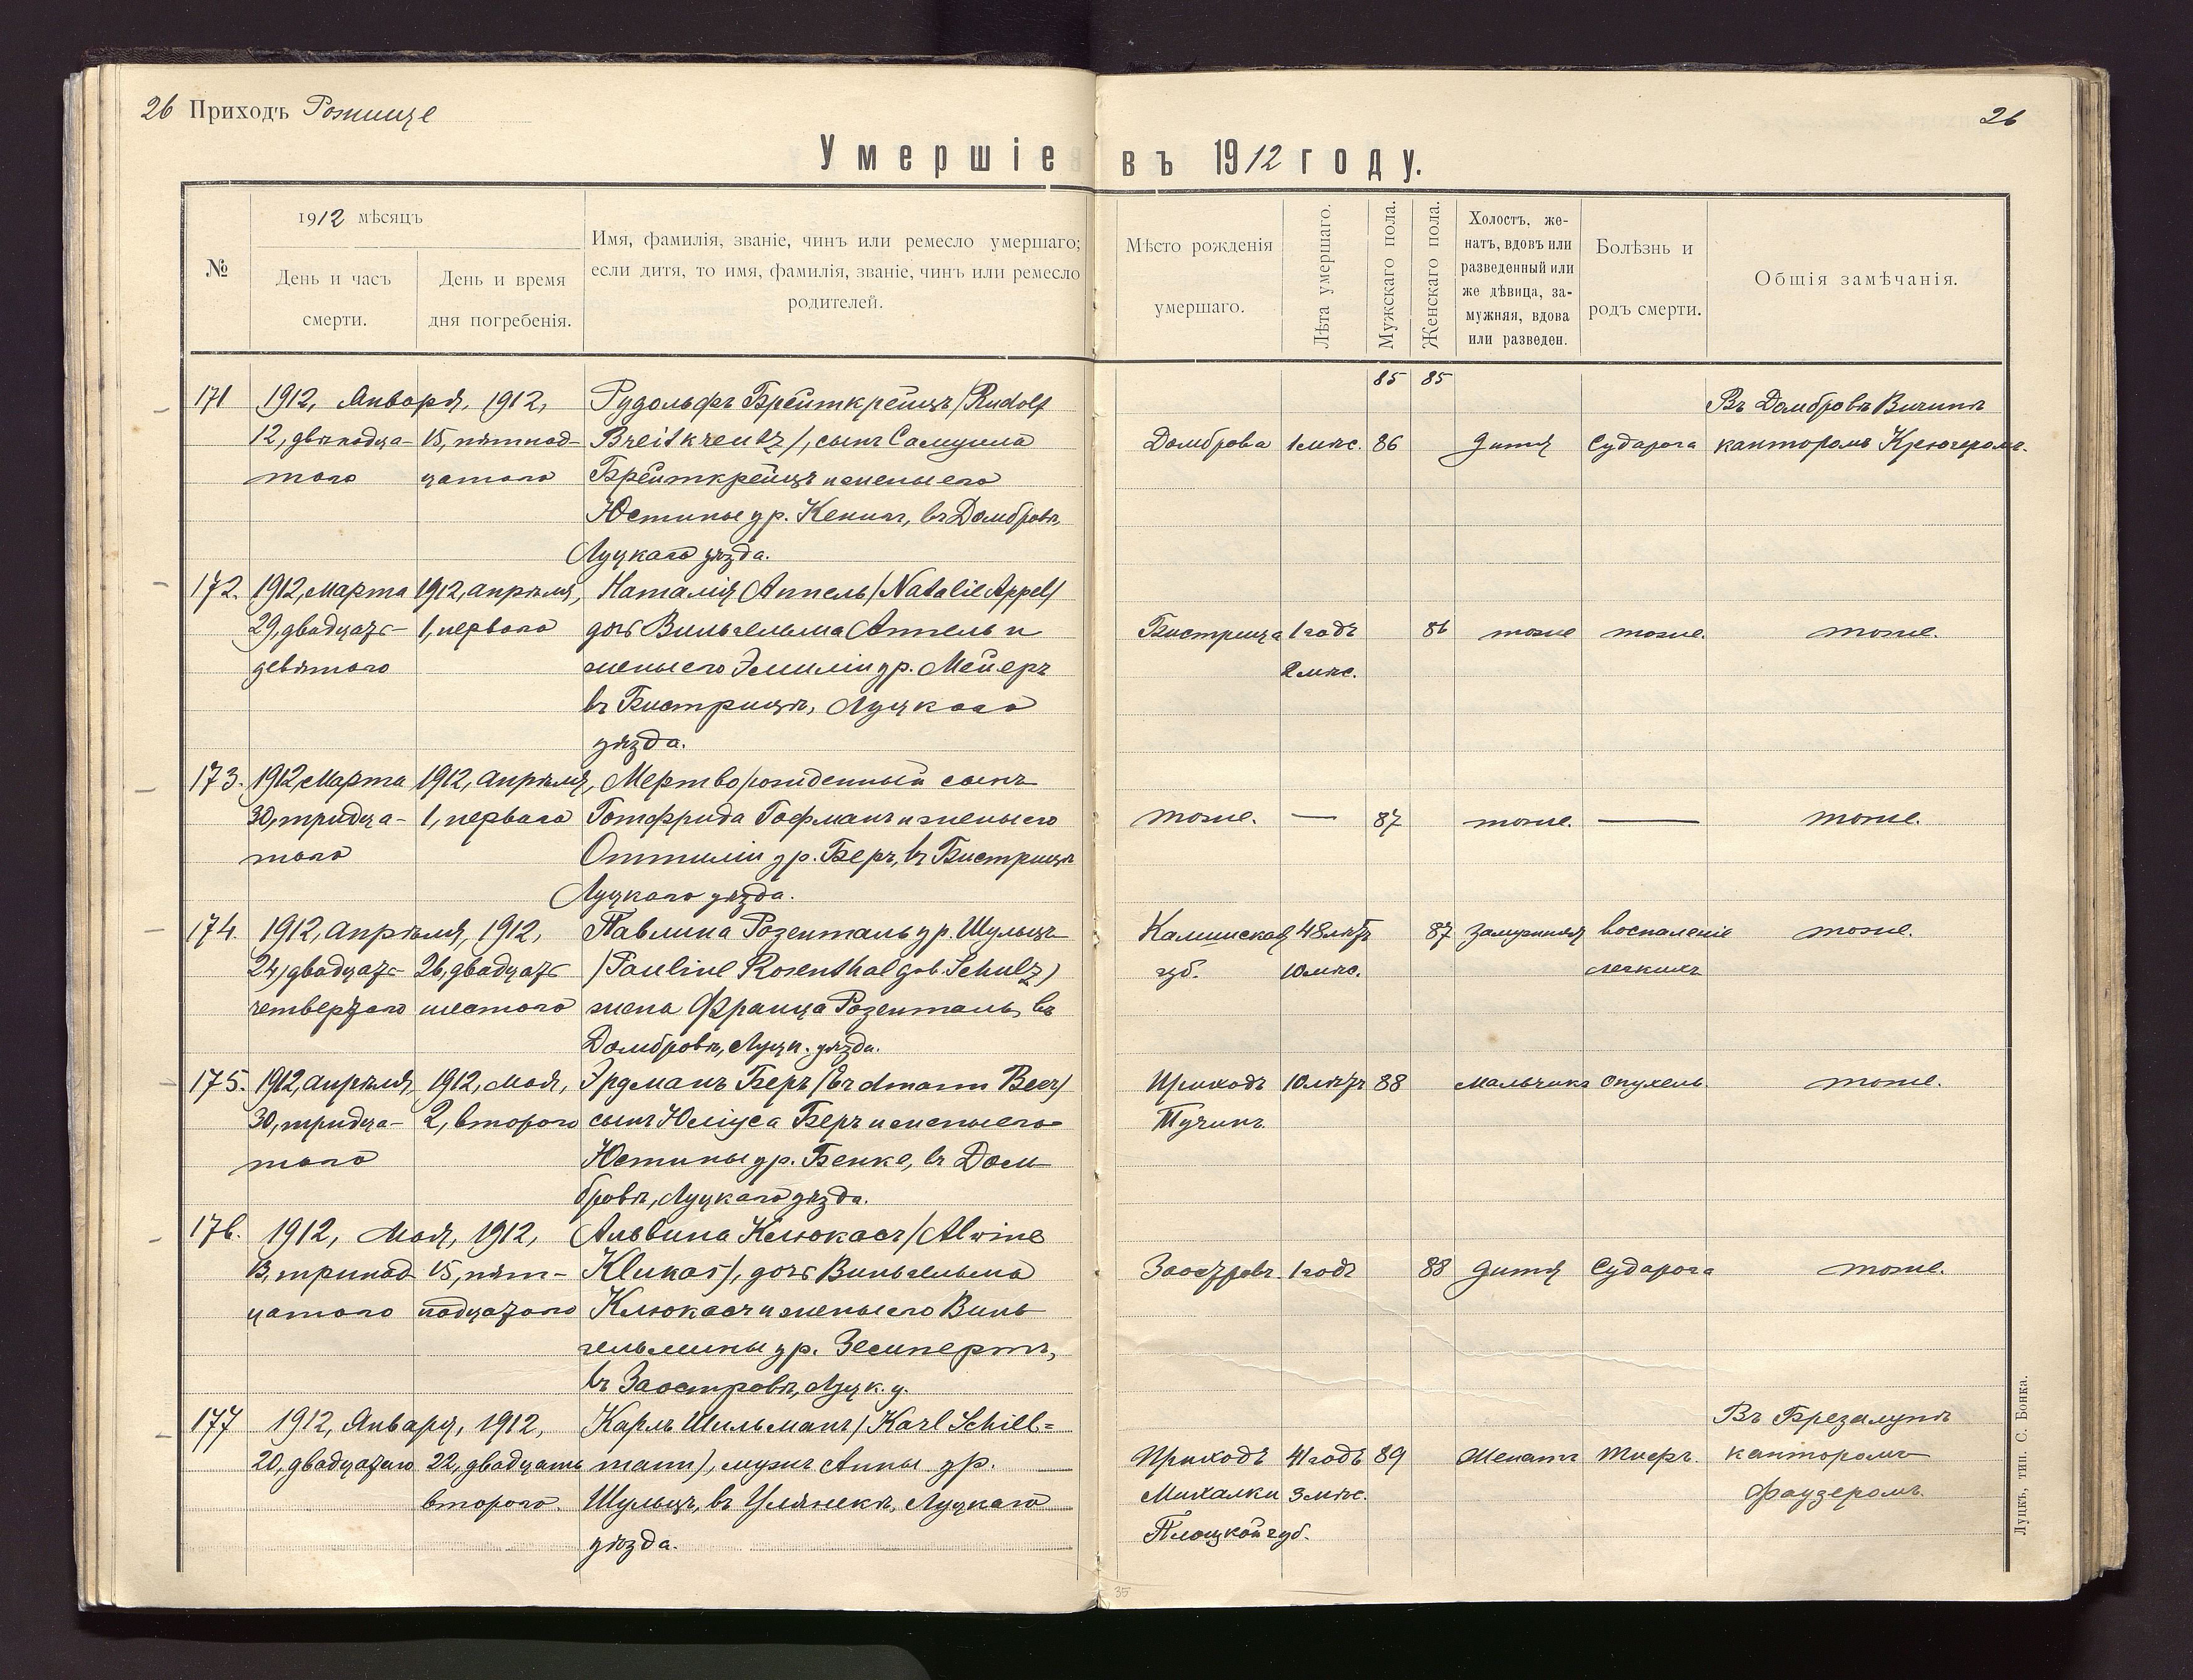 26 Приходъ Рожище
26
Умершіе въ 1912 году.
№
1912 мѣсяцъ
День и часъ смерти.
День и время дня погребенія.
Имя, фамилія, званіе, чинъ или ремесло умершаго;
если дитя, то имя, фамилія, званіе, чинъ или ремесло
родителей.
Мѣсто рожденія
умершаго.
Лѣта умершаго.
Мужскаго пола.
Женскаго пола.
Холостъ, же-
натъ, вдовъ или
разведенный или
же дѣвица, за-
мужняя, вдова
или разведен.
Болѣзнь и
родъ смерти.
Общія замѣчанія.
85 85
171 1912, Января, 1912, Рудольфъ Брейткрейцъ /Rudolf Въ Домбровѣ Вичинѣ
12, двѣнадца- 15, пятнад- Breitkreutz/, сынъ Самуила Домброва 1 мѣс. 86 дитя Сударога канторомъ Крюгеромъ.
таго цатаго Брейткрейцъ и жены его
Юстины ур. Кенигъ, въ Домбровѣ,
Луцкаго уѣзда.
172. 1912, Марта 1912, Апрѣля, Наталія Аппель /Natalie Appel/
29, двадцать 1, перваго дочь Вильгельма Аппель и Бистрица 1 годъ 86 тоже тоже. тоже.
девятаго жены его Эмиліи ур. Мейеръ 2 мѣс.
въ Бистрицѣ, Луцкаго
уѣзда.
173. 1912, Марта 1912, Апрѣля, Мертворожденный сынъ
30, тридца- 1, перваго Готфрида Гофманъ и жены его тоже. — 87 тоже. — тоже.
таго Оттиліи ур. Беръ, въ Бистрицѣ
Луцкаго уѣзда.
174. 1912, Апрѣля, 1912, Павлина Розенталь ур. Шульцъ Калишская 48 лѣтъ 87 замужняя воспаленіе тоже.
24, двадцать 26, двадцать /Pauline Rosenthal geb. Schulz) губ. 10 мѣс. легкихъ
четвертаго шестаго жена Франца Розенталь, въ
Домбровѣ, Луцк. уѣзда.
175. 1912, Апрѣля, 1912, Мая, Эрдманъ Беръ /Erdmann Beer/ Приходъ 10 лѣтъ 88 мальчикъ опухель тоже.
30, тридца- 2, второго сынъ Юліуса Беръ и жены его Тучинъ.
таго Юстины ур. Бенке, въ Дом-
бровѣ, Луцкаго уѣзда.
176. 1912, Мая, 1912, Альвина Клюкасъ /Alwine
13, тринад- 15, пят- Klukas/, дочь Вильгельма Заостровъ. 1 годъ 88 дитя Сударога тоже.
цатаго надцатаго Клюкасъ и жены его Виль
гельмины ур. Зейпертъ,
въ Заостровѣ, Луцк. у.
177 1912, Января, 1912, Карлъ Шильманъ /Karl Schill= Въ Брезалупѣ
20, двадцатаго 22, двадцать mann), мужъ Анны ур. Приходъ 41 годъ 89 Женатъ Тифъ. канторомъ
второго. Шульцъ, въ Улянекѣ, Луцкаго Михалки 3 мѣс. Фаузеромъ.
уѣзда. Плоцкой губ.
Луцкъ, тип. С. Бонка.
35